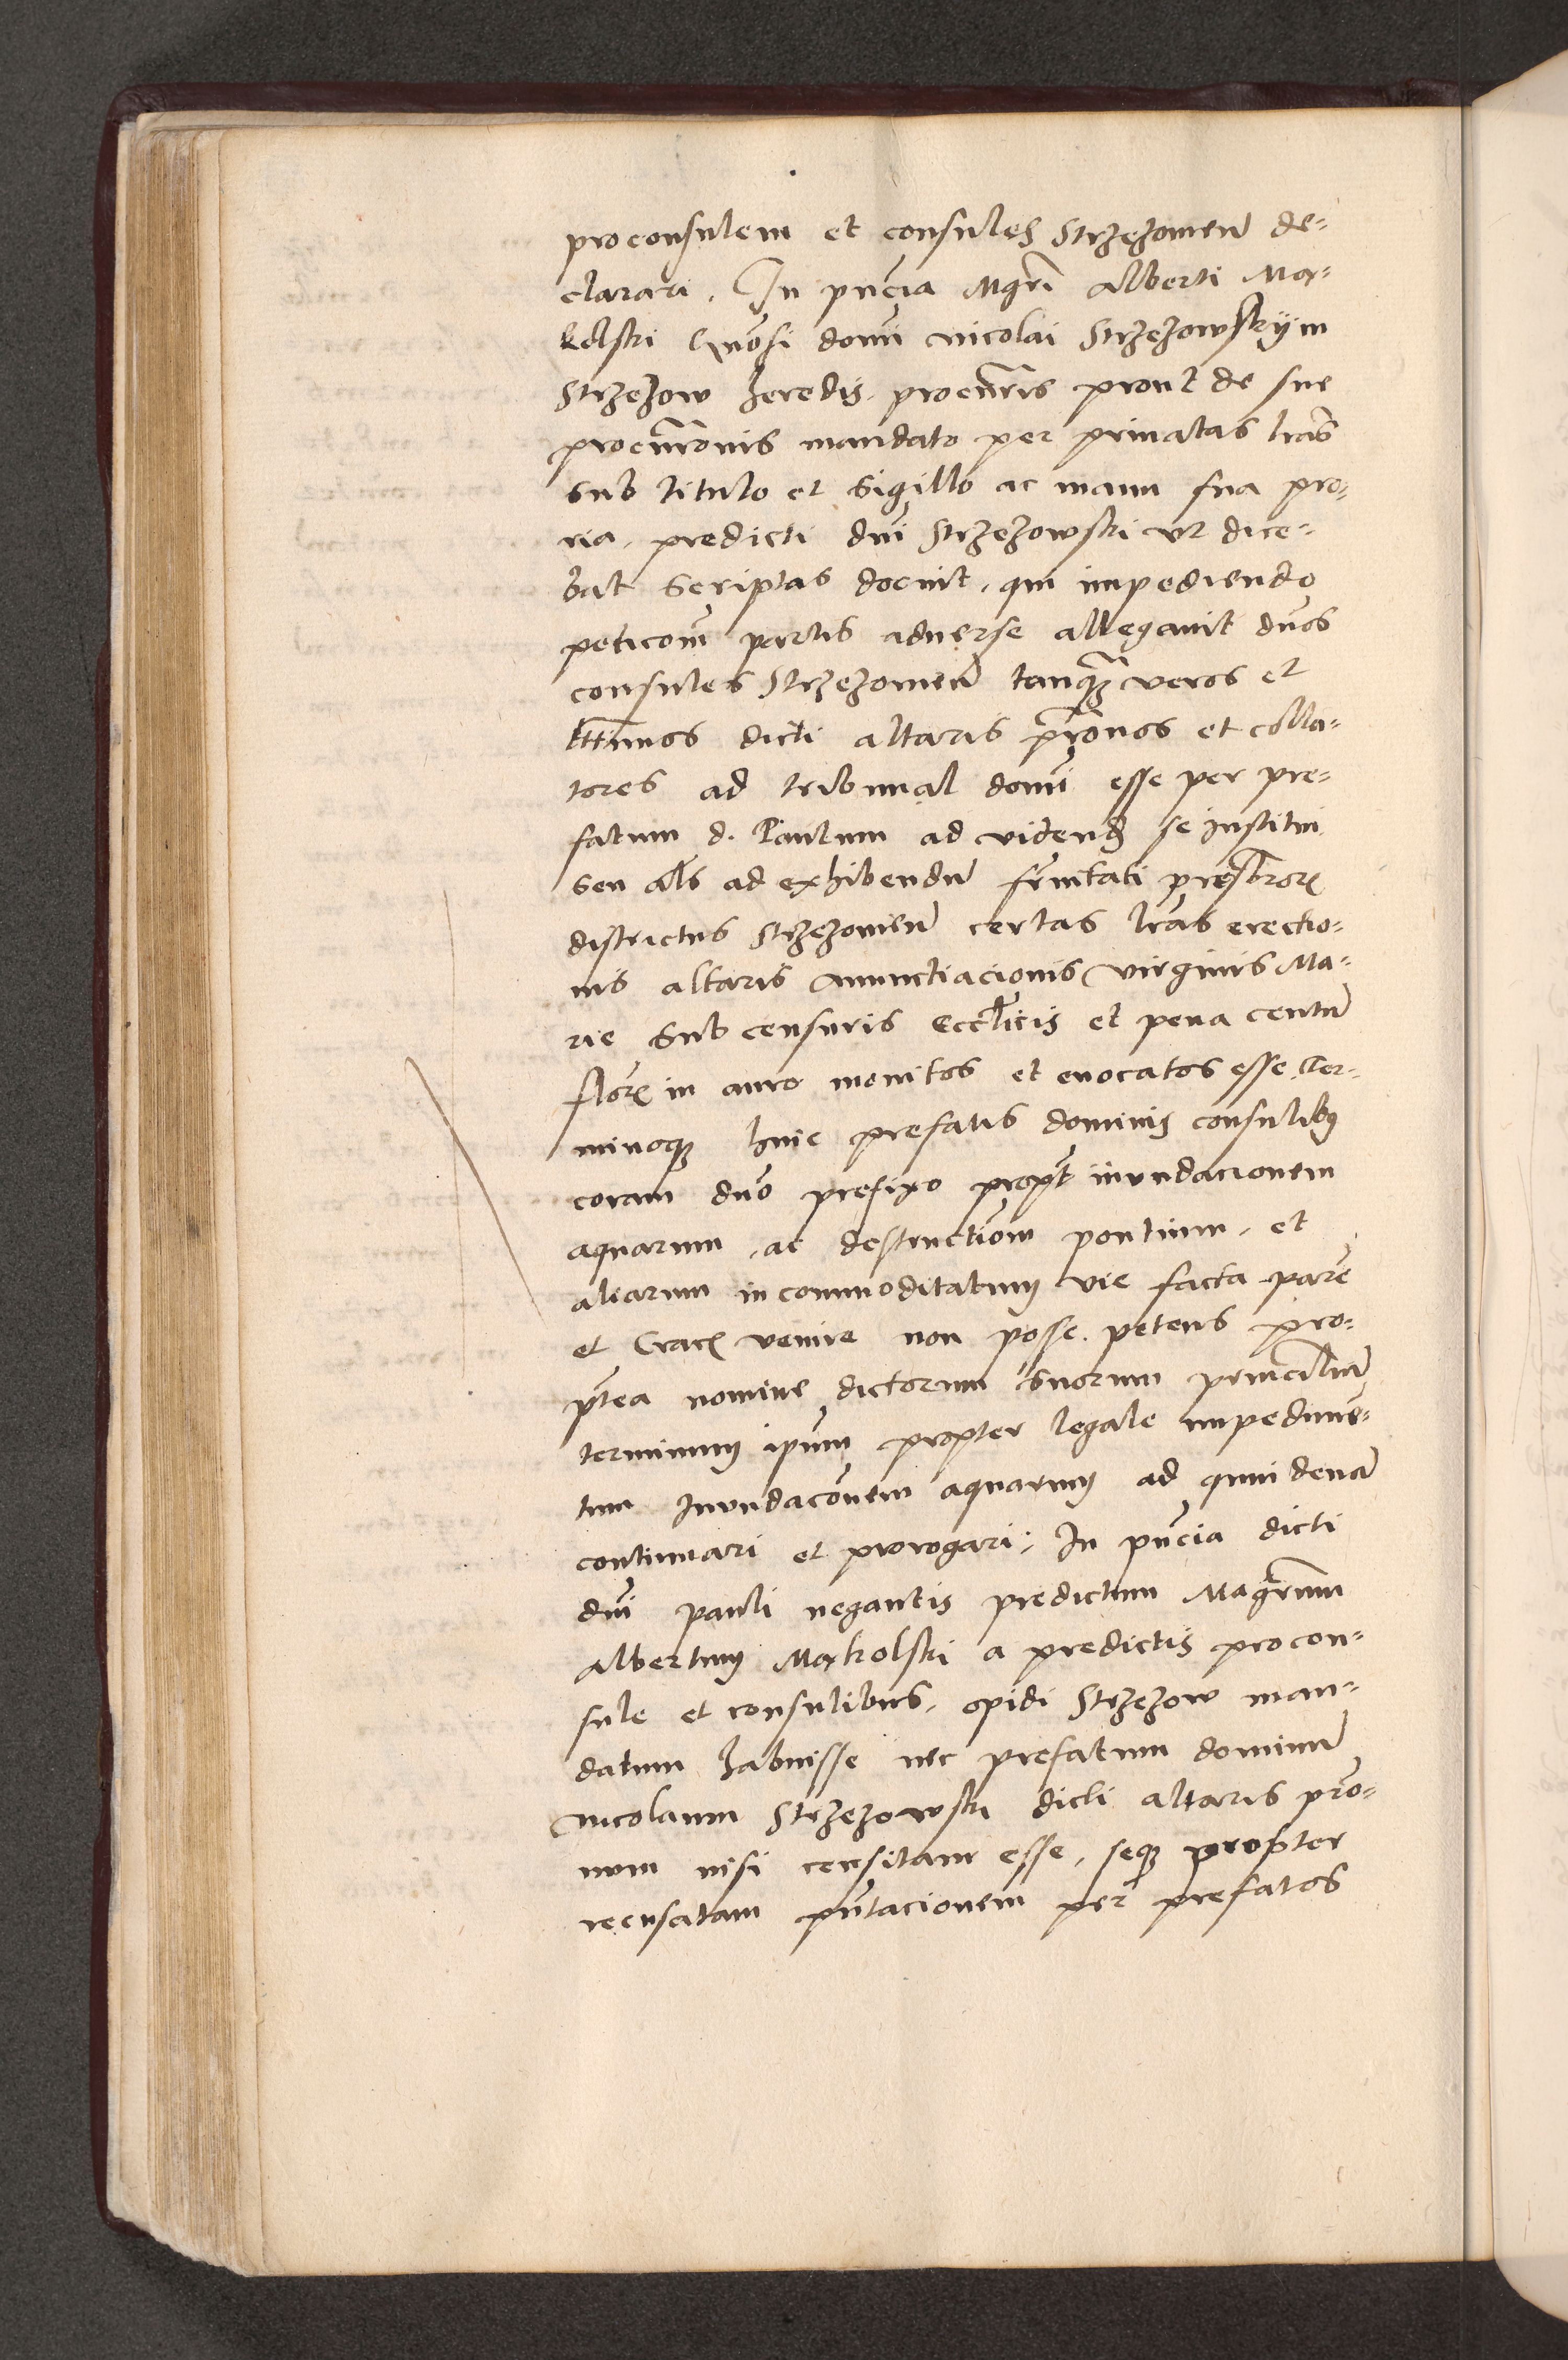 proconsulem et consules Strzezomen̄ de=
clarari. In pn̄cia Mgrī Alberti Mar=
kolski Gn̄osi domī Nicolai Strzezowskÿ in
Strzezow heredis procūrris prout de sue
procūrronis mandato per priuatas lrās
sub titulo et sigillo ac manu sua pro=
ria predicti dnī Strzezowski vt dice=
bat scriptas docuit, qui impediendo
peticōm partis aduerse allegauit dnōs
consules Strzezomen̄ tanq̄ꝫ veros et
lttīmos dicti altaris prōnos et colla=
tores ad tribunal domī esse per pre=
fatum d. Paulum ad videndꝫ se institui
seu als̄ ad exhibendū frn̄itati presbr̄orꝫ
districtus Strzezomien̄ certas lrās erectio=
nis altaris Annunctiacionis virginis Ma=
rie sub censuris eccl̄icis et pena centū
flōrꝫ in auro monitos et euocatos esse ter=
minoqꝫ huic prefatis dominis consulibꝰ
coram dnō prefixo propt̄ inundacionem
aquarum, ac destructiōm pontium, et
aliarum incommoditatum vie facta parē
et Cracꝫ venire non posse. petens pro=
pt̄ea nomine dictorum suorum princīliū
terminum ip̄um propter legale impedimē=
tum Inundacōnem aquarum ad quindenā
continuari et prorogari; In pn̄cia dicti
dnī Pauli negantis predictum Magrūm
Albertum Markolski a predictis procon=
sule et consulibus, opidi Strzezow man=
datum habuisse nec prefatum dominū
Nicolaum Strzezowski dicti altaris prō=
num nisi censitam esse, seqꝫ propter
recusatam pn̄tacionem per prefatos